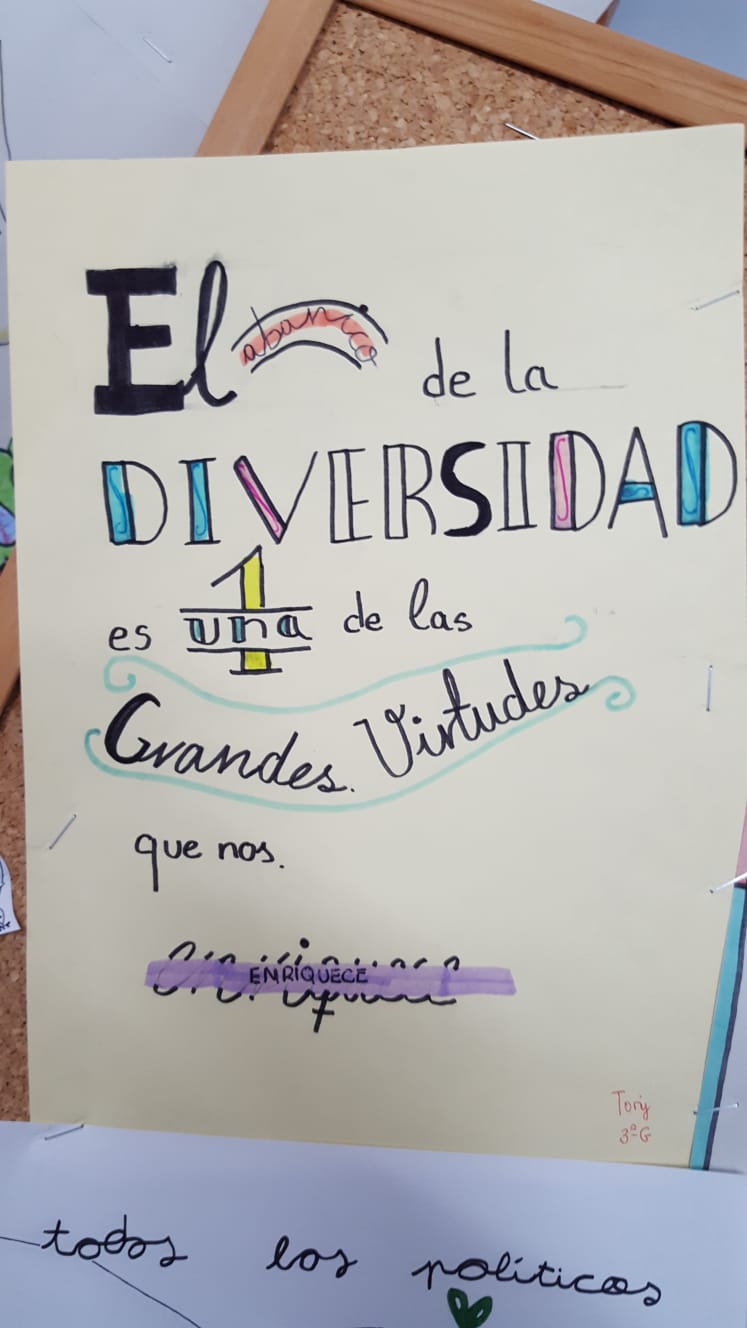 El abanico de la
DIVERSIDAD
es 1 una de las
Grandes Virtudes
que nos.
enriquece
ENRIQUECE
Tony
3ªG
todos los políticos